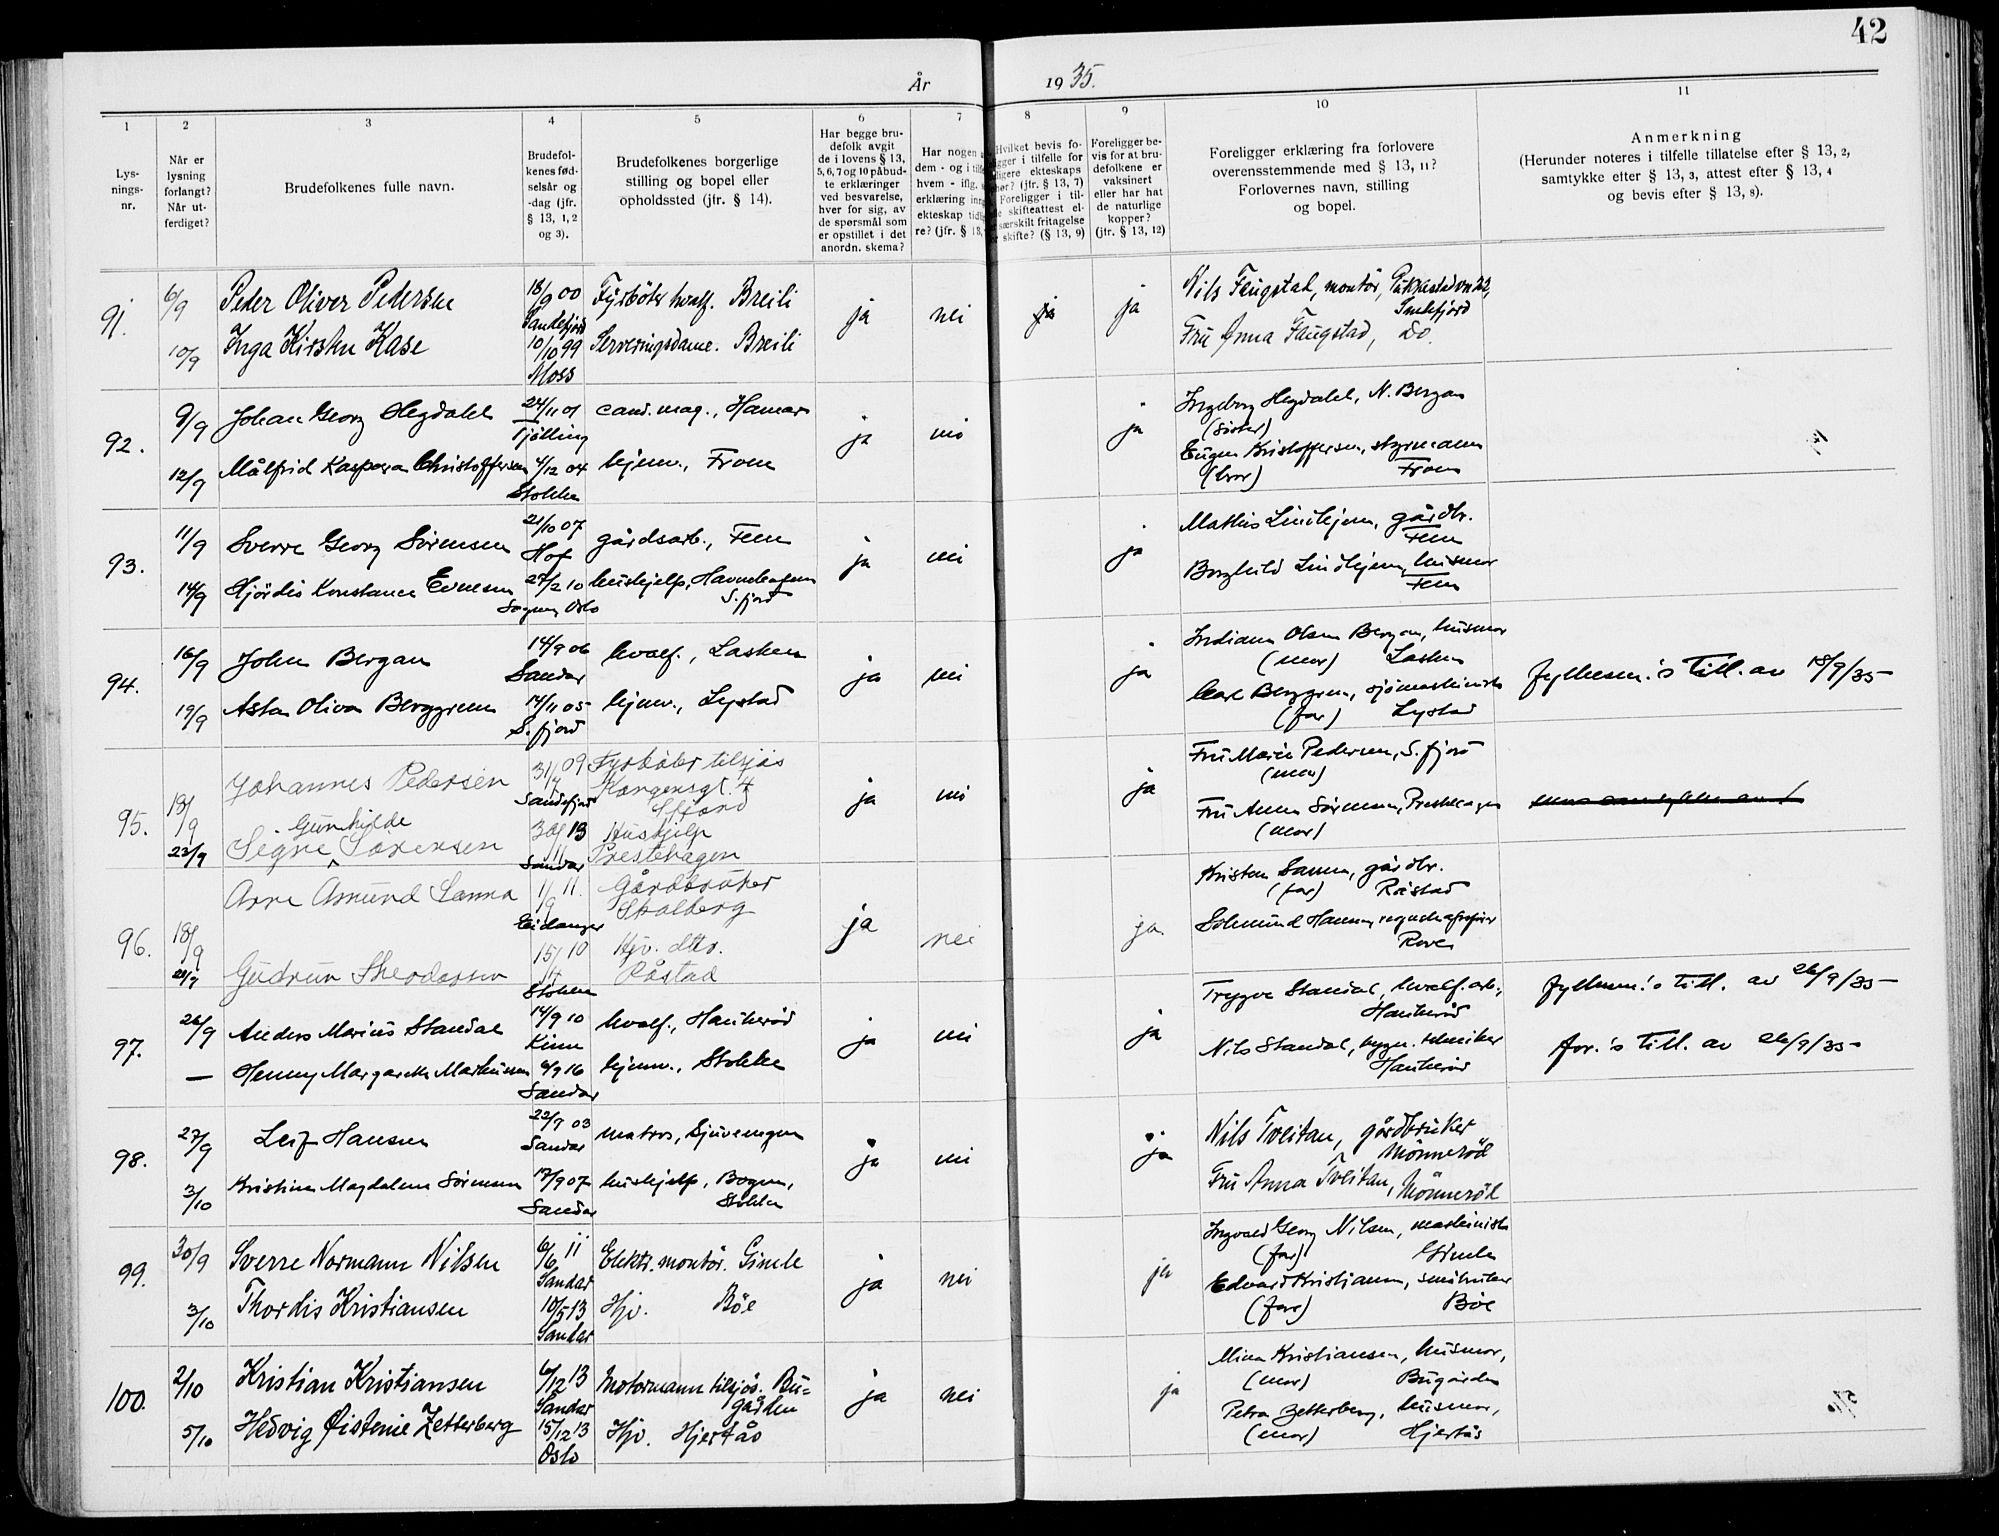 42
År 1935.
1
2
3
4
5
6
7
8
9
10
11
Lys-
nings-
nr.
Når er
lysning
forlangt?
Når ut-
ferdiget?
Brudefolkenes fulle navn.
Brudefol-
kenes fød-
selsår og
-dag (jfr.
§ 13, 1, 2
og 3).
Brudefolkenes borgerlige
stilling og bopel eller
opholdssted (jfr. § 14).
Har begge bru-
defolk avgit
de i lovens § 13,
5, 6, 7 og 10 påbud-
te erklæringer
ved besvarelse,
hver for sig, av
de spørsmål som
er opstillet i det
anordn. skema?
Har nogen
dem - og i
hvem - iflg.
erklæring
ekteskap
re? (jfr. § 13,
Hvilket bevis fo-
i tilfelle for
ekteskaps
? (jfr. § 13, 7)
Foreligger i til-
skifteattest el-
særskilt fritagelse
skifte? (§ 13, 9)
Foreligger be-
vis for at bru-
defolkene er
vaksinert
eller har hat
de naturlige
kopper?
(jfr. § 13, 12)
Foreligger erklæring fra forlovere
overensstemmende med § 13, 11?
Forlovernes navn, stilling
og bopel.
Anmerkning
(Herunder noteres i tilfelle tillatelse efter § 13, 2,
samtykke efter § 13, 3, attest efter § 13, 4
og bevis efter § 13, 8).
91.
6/9
Peder Oliver Pedersen
18/9 00
Sandefjord
Fyrbøter hvalf. Breili
ja nei ja ja
Nils Faugstad, montör,
Sandefjord
10/9
Inga Kirsten Kase
10/10 99
Moss
Serveringsdame. Breili
Fru Anna Faugstad, Do.
92.
9/9
Johan Georg Hegdahl
24/11 01
Tjölling
cand. mag., Hamar
ja nei ja
Ingeborg Hegdahl, N. Bergan
(söster)
12/9
Målfrid Kaspara Christoffersen
4/12 04
Stokke
hjemv., Fron
Eugen Kristoffersen, styrmann
(bror) Fron
93.
11/9
Sverre Georg Sörensen
21/10 07
Hof
gårdsarb., Fem
ja nei ja
Mathis Lindhjem, gårdbr.
Fem
14/9
Hjördis Konstance Evensen
27/2 10
Sagene, Oslo
hushjelp, Havnehagen
S.fjord
Borghild Lindhjem, husmor
Fem
94.
16/9
John Bergan
14/9 06
Sandar
hvalf., Lasken
ja nei ja
Indiana Olsen Bergan, husmor
(mor) Lasken
19/9
Asta Oliva Berggren
14/11 05
S.fjord
hjemv., Lystad
Carl Berggren, sjömaskinist
(far) Lystad
Fylkesm.'s Till. av 18/9/35
95.
18/9
Johannes Pedersen
31/7 09
Sandefjord
Fyrbøter tilsjøs
Kongensgt. 4
Sfjord
ja nei ja
Fru Marie Pedersen, S.fjord
(mor)
23/9
Gunhilde
Signe Sørensen
30/11 13
Sandar
Hushjelp
Prestehagen
Fru Anna Sörensen, Prestehagen
(mor)
96.
18/9
Arne Asmund Sanna
1/9 11.
Eidanger
Gårdbruker
Skolberg
ja nei ja
Kristen Sanna, gårdbr.
(far) Råstad
Gudrun Theodorsen
15/4 10
Stokke
Hjv. dtto.
Råstad
Rove
97.
26/9
Anders Marius Standal
14/9 10
Kinn
hvalf., Haukeröd
ja nei ja
Trygve Standal, hvalf.arb.,
Haukeröd
Fylkesm.'s till. av 26/9/35
—
Henny Margarethe Markussen
4/9 16
Sandar
hjemv., Stokke
Nils Standal, bygn. tekniker
Haukeröd
for.'s till. av 26/9/35
98.
27/9
Leif Hansen
22/7 03
Sandar
matros, Djuvengen
ja nei ja
Nils Tveitan, gårdbruker
Mönneröd
3/10
Kristine Magdalene Sörensen
17/9 07
Sandar
hushjelp, Bogen,
Stokke
Fru Anna Tveitan, Mönneröd
99.
30/9
Sverre Normann Nilsen
6/6 11
Sandar
Elektr. montör. Gimle
ja nei ja
Ingvald Georg Nilsen, maskinist
(far) Gimle
3/10
Thordis Kristiansen
10/5 13
Sandar
Hjv. Böe
Edvard Kristiansen, småbruker
(far) Böe
100.
2/10
Kristian Kristiansen
6/12 13
Sandar
Motormann tilsjös. Bu-
gården
ja nei ja
Mina Kristiansen, husmor,
(mor) Bugården
5/10
Hedvig Øistenie Zetterberg
15/12 13
Oslo
Hjv. Hjertås
Petra Zetterberg, husmor,
(mor) Hjertås